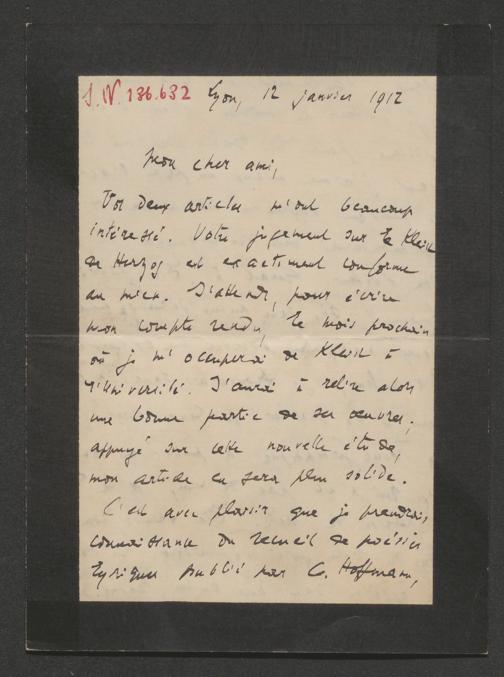 J. N. 186.632 Lyon, 12 janvier 1912
Mon cher ami,
Vos deux articles m'ont beaucoup
intéressé. Votre jugement sur le Kleist
de Herzog est exactement conforme
au mien. J'attends, pour écrire
mon compte rendu, le mois prochain
où je m'occuperai de Kleist à
l'Université. J'aurai à relire alors
une bonne partie de ses œuvres.
appuyé sur cette nouvelle étude,
mon article en sera plus solide.
C'est avec plaisir que je prendrais
connaissance du recueil de poésies
lyriques publié par C. Hoffmann,